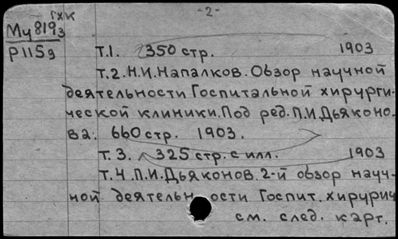 ГХК
-2-
Му 819з
Р115g
Т.1. 350 стр. 1903
Т.2. Н.И.Напалков. Обзор научной
деятельности Госпитальной хирурги-
ческой клиники. Под ред. П.И.Дьяконо-
ва. 660 стр. 1903.
Т.3. 325 стр. с илл. 1903
Т.4. П.И.Дьяконов. 2-й обзор науч-
ной деятельности Госпит. хирургич
см. след. карт.